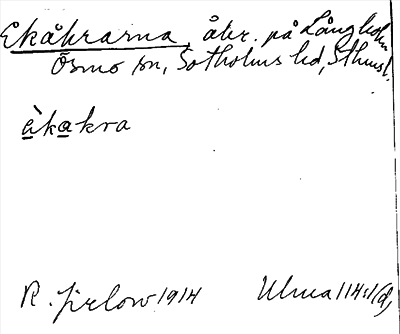 Ekåkrarna, åkr. på Långholm
Ösmo sn, Sotholms hd, Sthms l.
èkakra
R. Jirlow 1914 Ulma 114:1(d)